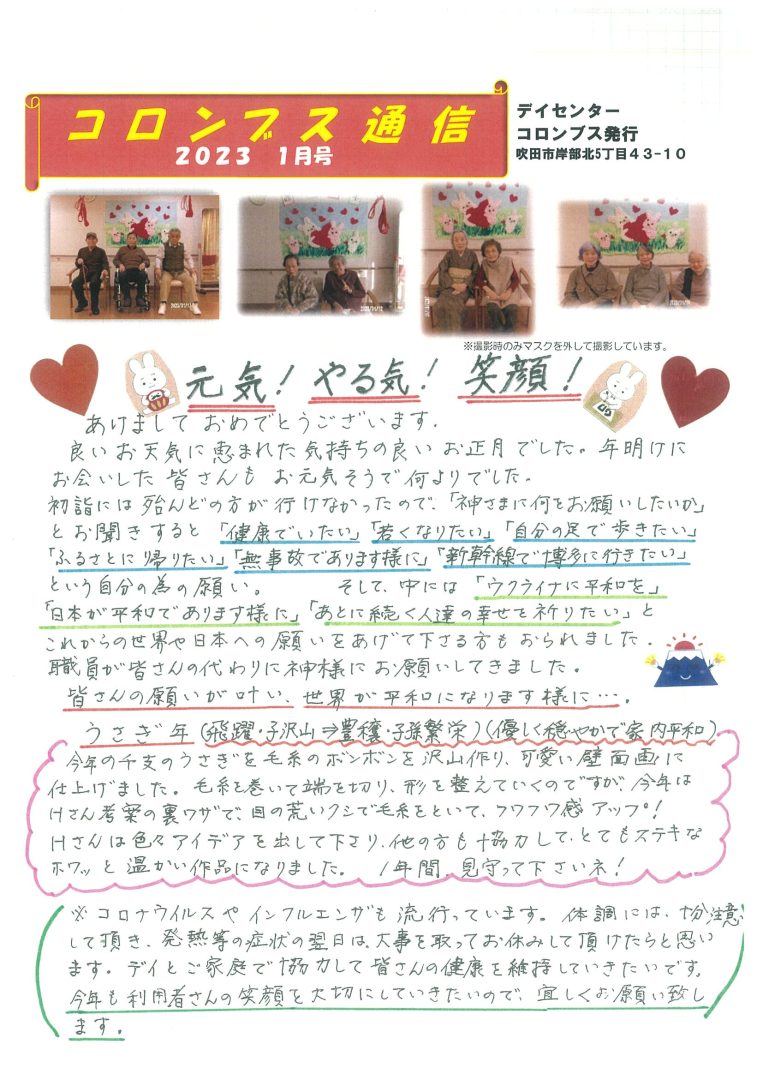 コロンブス通信
2023 1月号
デイセンター
コロンブス発行
吹田市岸部北5丁目43-10
※撮影時のみマスクを外して撮影しています。
元気！ やる気！ 笑顔！
あけまして おめでとうございます.
良いお天気に恵まれた気持ちの良いお正月でした。年明けに
お会いした皆さんも お元気そうで何よりでした.
初詣には殆んどの方が行けなかったので、「神さまに何をお願いしたいか」
とお聞きすると 「健康でいたい」「若くなりたい」「自分の足で歩きたい」
「ふるさとに帰りたい」「無事故であります様に」「新幹線で博多に行きたい」
という自分の為の願い。 そして、中には 「ウクライナに平和を」
「日本が平和であります様に」「あとに続く人達の幸せを祈りたい」と
これからの世界や日本への願いをあげて下さる方もおられました.
職員が皆さんの代わりに神様にお願いしてきました.
皆さんの願いが叶い、世界が平和になります様に….
うさぎ年 (飛躍・子沢山⇒豊穣・子孫繁栄)(優しく穏やかで家内平和)
今年の干支のうさぎを毛糸のボンボンを沢山作り、可愛い壁面画に
仕上げました。毛糸を巻いて端を切り、形を整えていくのですが、今年は
Hさん考案の裏ワザで、目の荒いクシで毛糸をといて、フワフワ感アップ！
Hさんは色々アイデアを出して下さり、他の方も協力して、とてもステキな
ホワッと温かい作品になりました。 1年間 見守って下さいネ！
※コロナウイルスやインフルエンザも流行っています。体調には、十分注意
して頂き、発熱等の症状の翌日は、大事を取ってお休みして頂けたらと思い
ます。デイとご家庭で協力して皆さんの健康を維持していきたいです。
今年も利用者さんの笑顔を大切にしていきたいので、宜しくお願い致し
ます。